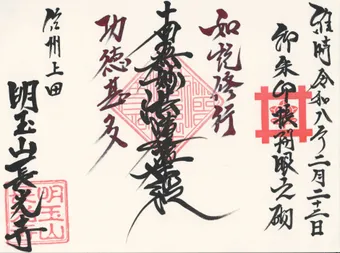 維時令和八年二月二十二日
御朱印帳開眼之砌
如説修行
南無妙法蓮華経
功徳甚多
信州上田
明玉山長光寺
明玉山